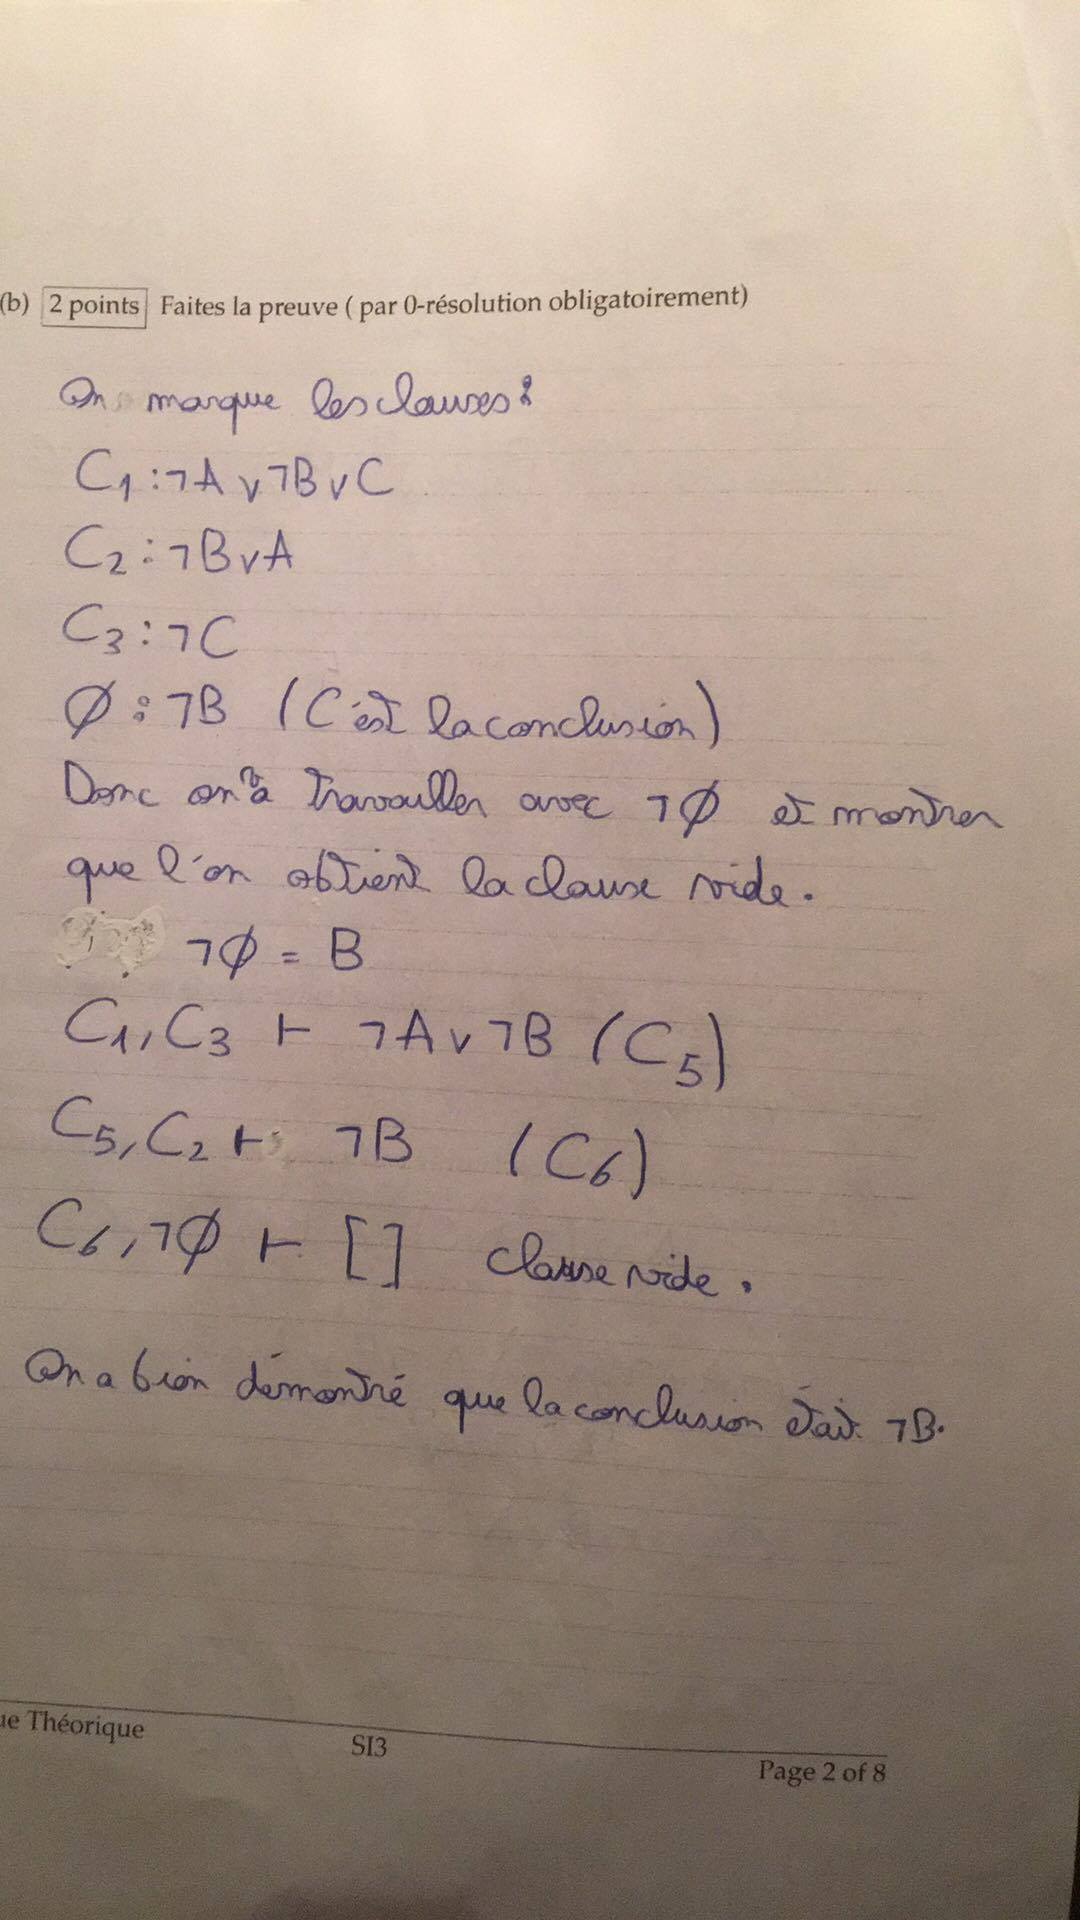 (b) 2 points Faites la preuve ( par 0-résolution obligatoirement)
On marque les clauses :
C₁ : ¬A ∨ ¬B ∨ C
C₂ : ¬B ∨ A
C₃ : ¬C
Ø : ¬B (C'est la conclusion)
Donc on va travailler avec ¬Ø et montrer
que l'on obtient la clause vide.
¬Ø = B
C₁, C₃ ⊢ ¬A ∨ ¬B (C₅)
C₅, C₂ ⊢ ¬B (C₆)
C₆, ¬Ø ⊢ [] clause vide.
On a bien démontré que la conclusion était ¬B.
ue Théorique
SI3
Page 2 of 8